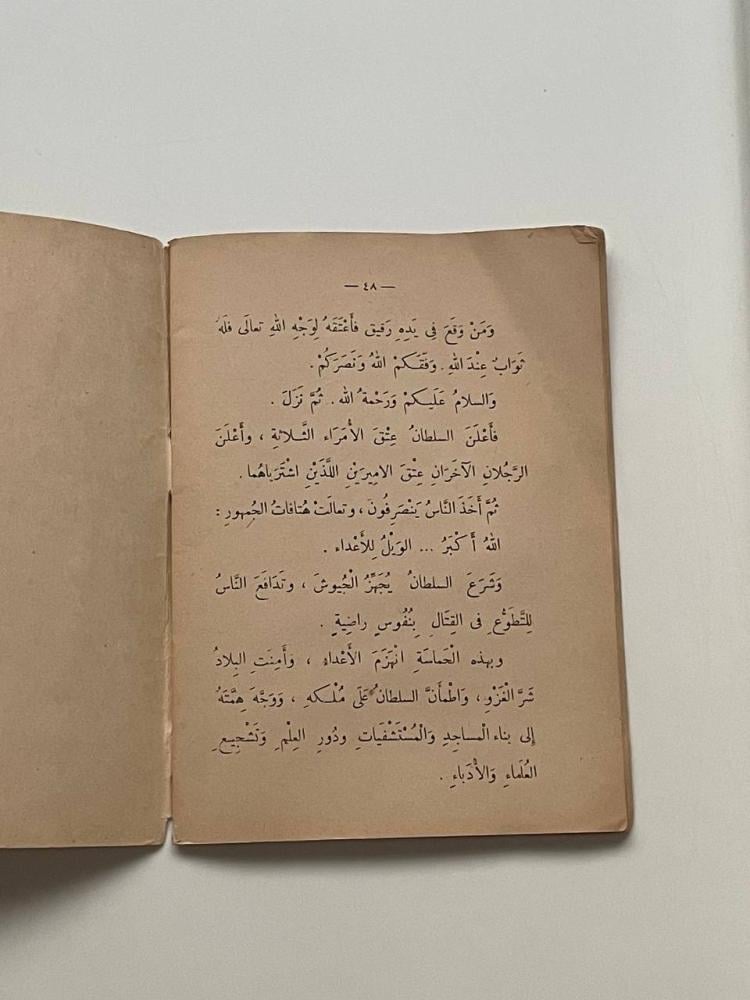 — ٤٨ —
وَمَنْ وَقَعَ فِى يَدِهِ رَقِيق فَأَعْتَقَهُ لِوَجْهِ اللهِ تعالَى فَلَهُ
ثَوَابٌ عِنْدَ اللهِ. وَفَّقَكمْ اللهُ وَنَصَرَكُمْ.
وَالسلامُ عَلَيكمْ وَرَحْمةُ الله. ثُمَّ نَزَلَ.
فَأَعْلَنَ السلطانُ عِتْقَ الأُمَرَاء الثَّلاثةِ، وأَعْلَنَ
الرَّجُلانِ الآخَرَانِ عِتْقَ الامِيرَيْنِ اللَّذَيْنِ اشْتَرَياهُما.
ثُمَّ أَخَذَ النَّاسُ يَنْصَرِفُونَ، وتعالَتْ هُتافاتُ الجُمهورِ:
اللهُ أَكْبَرُ ... الوَيْلُ لِلأَعْداء.
وَشَرَعَ السلطانُ يُجَهِّزُ الْجُيوشَ، وتَدَافَعَ النَّاسُ
لِلتَّطَوُّعِ فى القِتَالِ بِنُفُوسٍ راضِيةٍ.
وبهذه الْحَماسَةِ انْهَزَمَ الأَعْداء، وَأَمِنَتِ البِلادُ
شَرَّ الْغَزْوِ، وَاطْمَأَنَّ السلطانُ عَلَى مُلْكهِ، وَوَجَّهَ هِمَّتَهُ
إلى بناء الْمساجِدِ وَالْمُسْتَشْفَياتِ ودُورِ العِلْمِ وَتَشْجِيعِ
العُلَماءِ وَالأُدَباءِ.